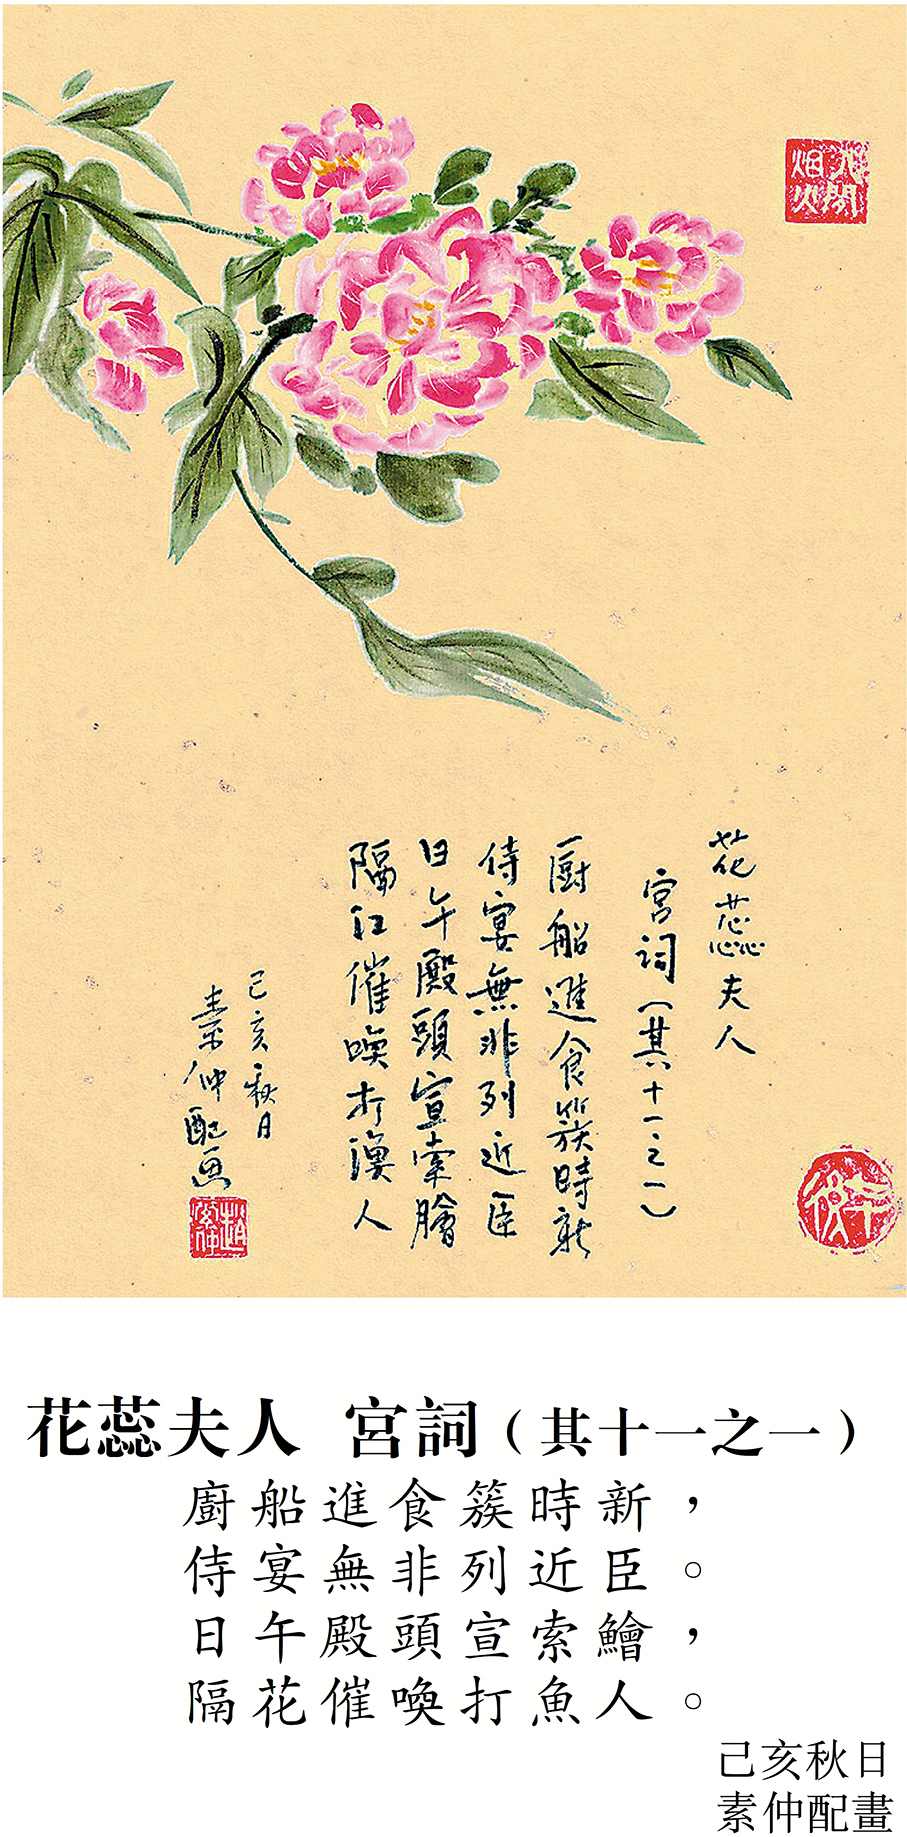 人間
烟火
花蕊夫人
宮詞（其十一之一）
厨船進食簇時新
侍宴無非列近臣
日午殿頭宣索膾
隔江催喚打漁人
己亥秋日
素仲配画
花蕊夫人 宮詞（其十一之一）
廚船進食簇時新，
侍宴無非列近臣。
日午殿頭宣索鱠，
隔花催喚打魚人。
己亥秋日
素仲配畫